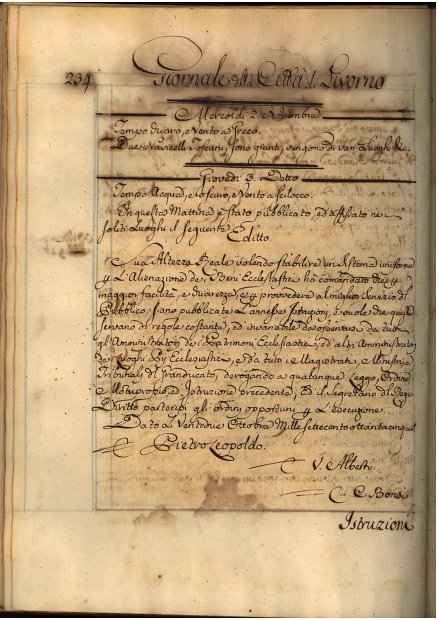 234.
Giornale della Città di Livorno
Mercoldì 2. Novembre
Tempo Oscuro, e Vento a Greco.
Due Navicelli Toscani sono giunti, e vengono da vari Luoghi &c.
Giovedì 3. Detto
Tempo Acqua, e oscuro, e Vento a Scilocco.
In questa Mattina è stato pubblicato, ed affissato nei
soliti Luoghi il seguente
Editto.
Sua Altezza Reale volendo stabilire un sistema uniforme
p L'Alienazione de Beni Ecclesiastici ha comandato che p
maggior facilità, e sicurezza, e p provvedere al miglior servizio del
Pubblico, siano pubblicate L'annesse Istruzioni, e vuole che queste
servano di regole costanti, ed invariabili da osservarsi da tutti
gl'Amministratori de Patrimoni Ecclesiastici, ed altri Amministratori
de Luoghi Pij Ecclesiastici, e da tutti i Magistrati, Ministri, e
Tribunali del Granducato, derogando a qualunque Legge, Ordine
Motuproprio, ed Istruzione precedente, ed il Segretario del Regio
Diritto partecipi gli ordini opportuni p L'Esecuzione.
Dato li Ventidue Ottobre Mille settecento ottantacinque
Pietro Leopoldo.
V. Alberti
C. Bonsi
Istruzioni